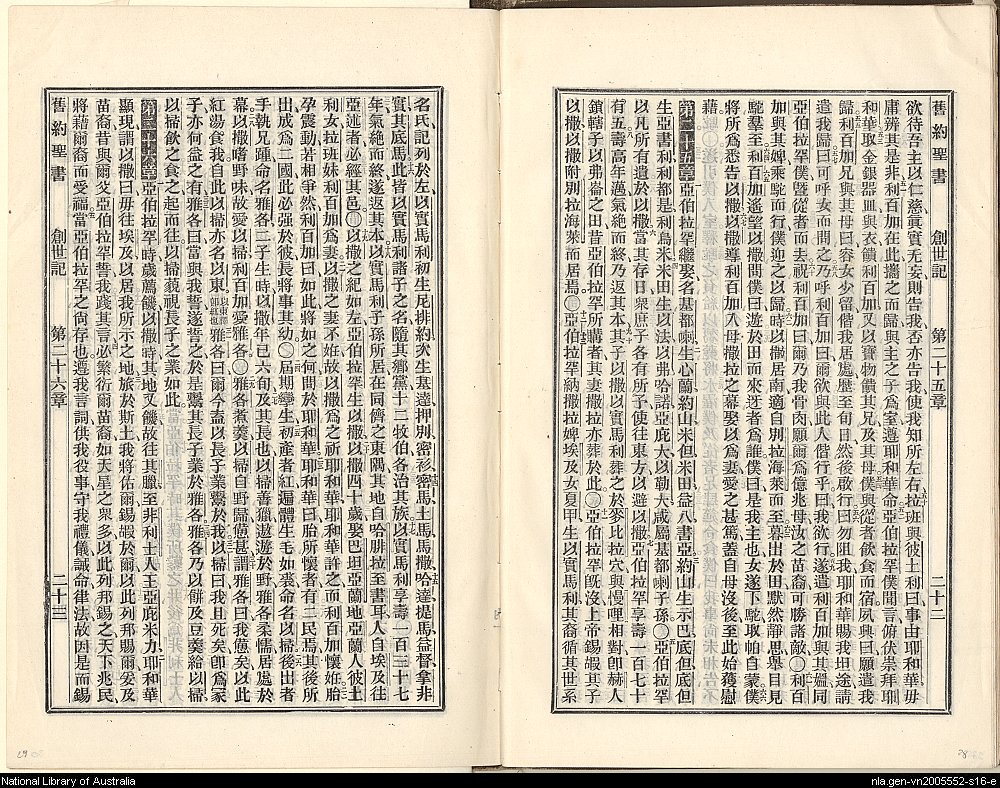 舊約聖書 創世記 第二十五章 二十二
欲待吾主以仁慈眞實无妄則告我否亦告我使我知所左右拉班與彼土利曰事由耶和華毋
庸辨其是非利百加在此攜之而歸與主之子爲室遵耶和華命亞伯拉罕僕聞言俯伏崇拜耶
和華取金銀器皿與衣饋利百加又以寶物饋其兄及其母僕與從者飲食而宿夙興曰願遣我
歸利百加兄與其母曰容女少留偕我居處歷至旬日然後啟行曰勿阻我耶和華賜我坦途請
遣我歸曰可呼女而問之乃呼利百加曰爾欲與此人偕行乎曰我欲行遂遣利百加與其媼同
亞伯拉罕僕曁從者而去視利百加曰爾乃我骨肉願爾爲億兆母汝之苗裔可勝諸敵〇利百
加與其婢乘駝而行僕迎之以歸時以撒居南適自別拉海萊而至暮出於田默然靜思舉目見
駝羣至利百加遙望以撒問僕曰遊於田而來迓者爲誰僕曰是我主也女遂下駝取帕自蒙僕
將所爲悉告以撒以撒導利百加入母撒拉之幕娶以爲妻愛之甚篤蓋自母沒後至此始獲慰
藉
第二十五章 亞伯拉罕繼娶名基都喇生心蘭約山米但米田益八書亞約山生示巴底但底但
生亞書利利都是利烏米米田生以法以弗哈諾亞庇大以勒大咸屬基都喇子孫〇亞伯拉罕
以其所有遺於以撒當其存日衆庶子各有所予使往東方以避以撒亞伯拉罕享壽一百七十
有五壽高年邁氣絕而終乃返其本其子以撒以實馬利葬之於麥比拉穴與慢哩相對卽赫人
鎖轄子以弗崙之田昔亞伯拉罕所購者其妻撒拉亦葬於此〇亞伯拉罕旣沒上帝錫嘏其子
以撒以撒附別拉海萊而居焉〇亞伯拉罕納撒拉婢埃及女夏甲生以實馬利其裔循其世系
名氏記列於左以實馬利初生尼排約次生基達押別密衫密馬土馬馬撒哈達提馬益督拿非
實其底馬此皆以實馬利諸子之名隨其鄉黨十二牧伯各治其族以實馬利享壽一百三十七
年氣絕而終遂返其本以實馬利子孫所居在同儕之東隅其地自哈腓拉至書耳人自埃及往
亞述者必經其邑〇以撒之紀如左亞伯拉罕生以撒以撒四十歲娶巴坦亞蘭地亞蘭人彼土
利女拉班妹利百加爲妻以撒之妻不姙故以撒爲之祈耶和華耶和華許之而利百加懷姙胎
孕震動若相爭然利百加曰如此將如之何問於耶和華耶和華曰胎所懷者有二民焉其後所
出成爲二國此必强於彼長將事其幼〇屆期孿生初產者紅遍體生毛如裘命名以掃後出者
手執兄踵命名雅各二子生時以撒年已六旬及其長也以掃善獵遨遊於野雅各柔懦居處於
幕以撒嗜野味故愛以掃利百加愛雅各〇雅各煮羹以掃自野歸憊甚謂雅各曰我憊矣以此
紅湯食我自此以掃亦名以東以東譯卽紅也雅各曰爾今盍以長子業鬻於我以掃曰我且死矣卽爲家
子亦何益之有雅各曰當與我誓遂誓之於是鬻其長子業於雅各雅各乃以餅及豆羹給以掃
以掃飲之食之起而往以掃藐視長子之業如此
第二十六章 亞伯拉罕時歲薦饑以撒時其地又饑故往其臘至非利士人王亞庇米力耶和華
顯現謂以撒曰毋往埃及以居我所示之地旅於斯土我將佑爾錫嘏於爾以此列邦賜爾曁及
苗裔昔與爾父亞伯拉罕誓我踐其言必繁衍爾苗裔如天星之衆多以此列邦錫之天下兆民
將藉爾裔而受福當亞伯拉罕之尙存也遵我言詞供我役事守我禮儀誡命律法故因是而錫
舊約聖書 創世記 第二十六章 二十三
29
28
National Library of Australia
nla.gen-vn2005552-s16-e